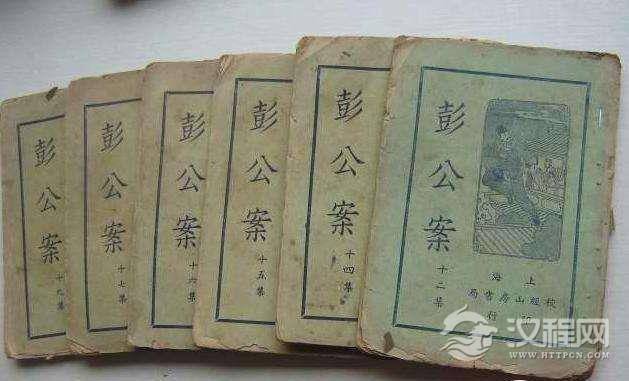 彭公案
十九集
彭公案
十七集
彭公案
十六集
彭公案
十五集
彭公案
十四集
彭公案
十二集
上海
校經山房書局
印行
汉程网
WWW.HTTPCN.COM